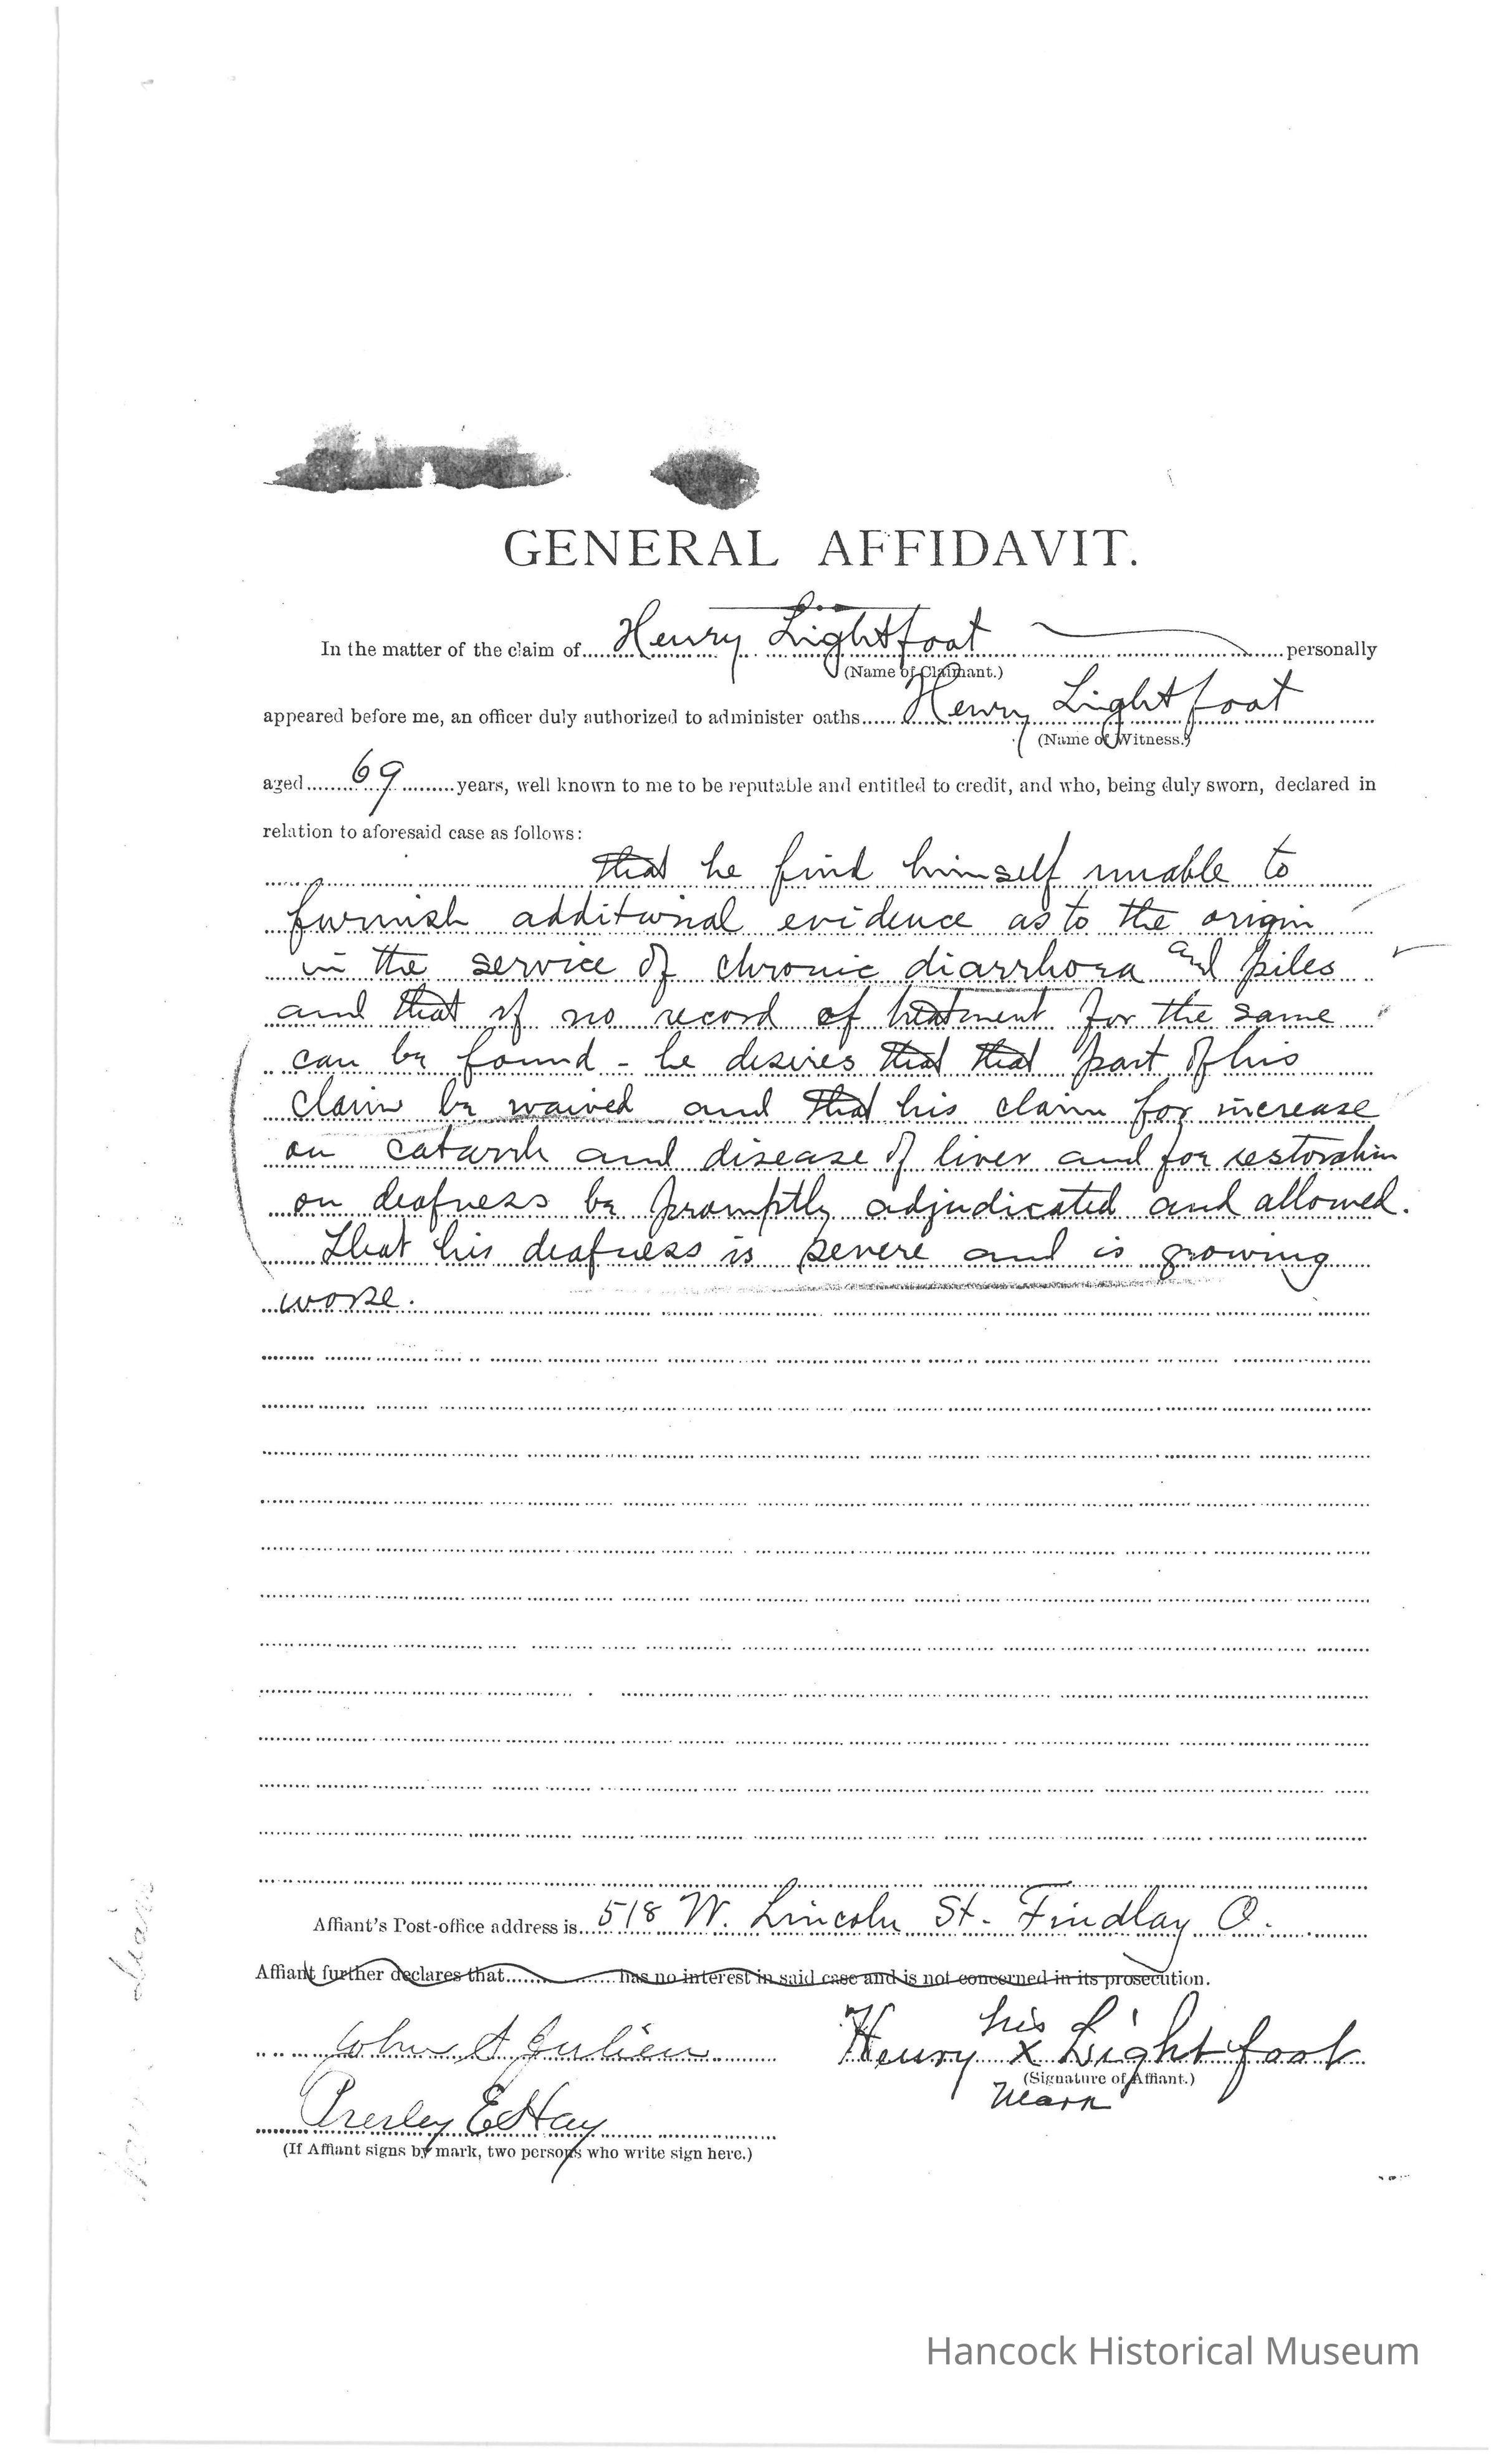 GENERAL AFFIDAVIT.
In the matter of the claim of Henry Lightfoot personally
(Name of Claimant.)
appeared before me, an officer duly authorized to administer oaths Henry Lightfoot
(Name of Witness.)
aged 69 years, well known to me to be reputable and entitled to credit, and who, being duly sworn, declared in
relation to aforesaid case as follows:
that he find himself unable to
furnish additional evidence as to the origin
in the service of chronic diarrhoea and piles
and that if no record of treatment for the same
can be found - he desires that that part of his
claim be waived and that his claim for increase
on catarrh and disease of liver and for restoration
on deafness be promptly adjudicated and allowed.
That his deafness is severe and is growing
worse.
Affiant's Post-office address is 518 W. Lincoln St. Findlay O.
Affiant further declares that has no interest in said case and is not concerned in its prosecution.
his
John A Julien Henry x Lightfoot
(Signature of Affiant.)
mark
Presley E Hay
(If Affiant signs by mark, two persons who write sign here.)
Hancock Historical Museum